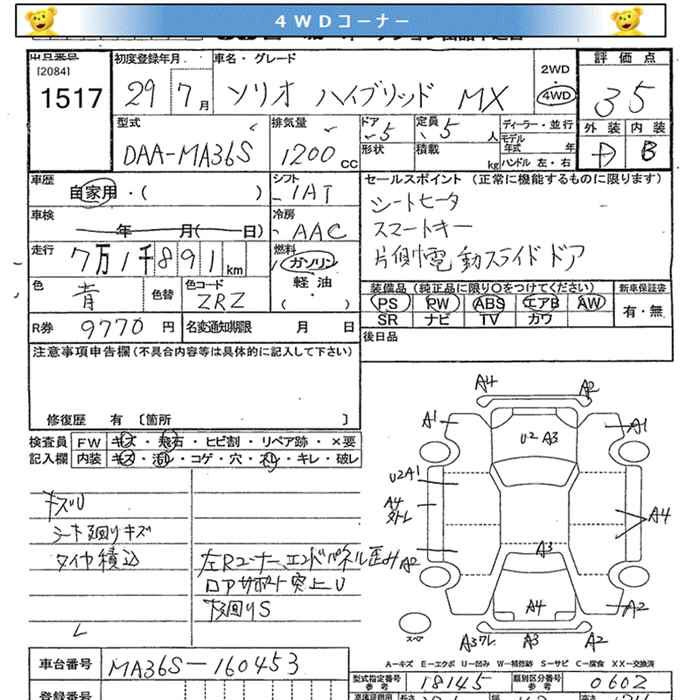 4WDコーナー
出品番号 初度登録年月 車名・グレード 2WD・4WD 評価点
[2084]
1517 29 7月 ソリオ ハイブリッド MX 35
型式 排気量 ドア 5 定員 5人 ディーラー・並行 外装 内装
DAA-MA36S 1200cc 形状 積載 kg モデル年式 年 ハンドル 左・右 D B
車歴 自家用・( ) シフト IAT セールスポイント (正常に機能するものに限ります)
車検 年 月( 日) 冷房 AAC シートヒータ
スマートキー
走行 7万1千891km 燃料 ガソリン 軽油 ・( ) 片側電動スライドドア
色 青 色替 色コード ZRZ 装備品 (純正品に限り○をつけてください) 新車保証書
PS PW ABS エアB AW 有・無
R券 9770円 名変通知期限 月 日 SR ナビ TV カワ
注意事項申告欄 (不具合内容等は具体的に記入して下さい) 後日品
修復歴 有 [箇所 ]
検査員 FW キズ・飛石・ヒビ割・リペア跡・×要
記入欄 内装 キズ・汚れ・コゲ・穴・スレ・キレ・破レ
キズU
シート廻りキズ
タイヤ積込 左Rコーナー、エンドパネル歪み
ロアサポート突上U
下廻りS
A4 A2
A1 U2 A3 A1
U2A1
A4 A4
A2 A3
A4 A2
スペア A3ワレ A3 A2
A-キズ E-エクボ U-凹み W-補修跡 S-サビ C-腐食 XX-交換済
車台番号 MA36S-160453 型式指定番号 参考 18145 類別区分番号 参考 0602
登録番号